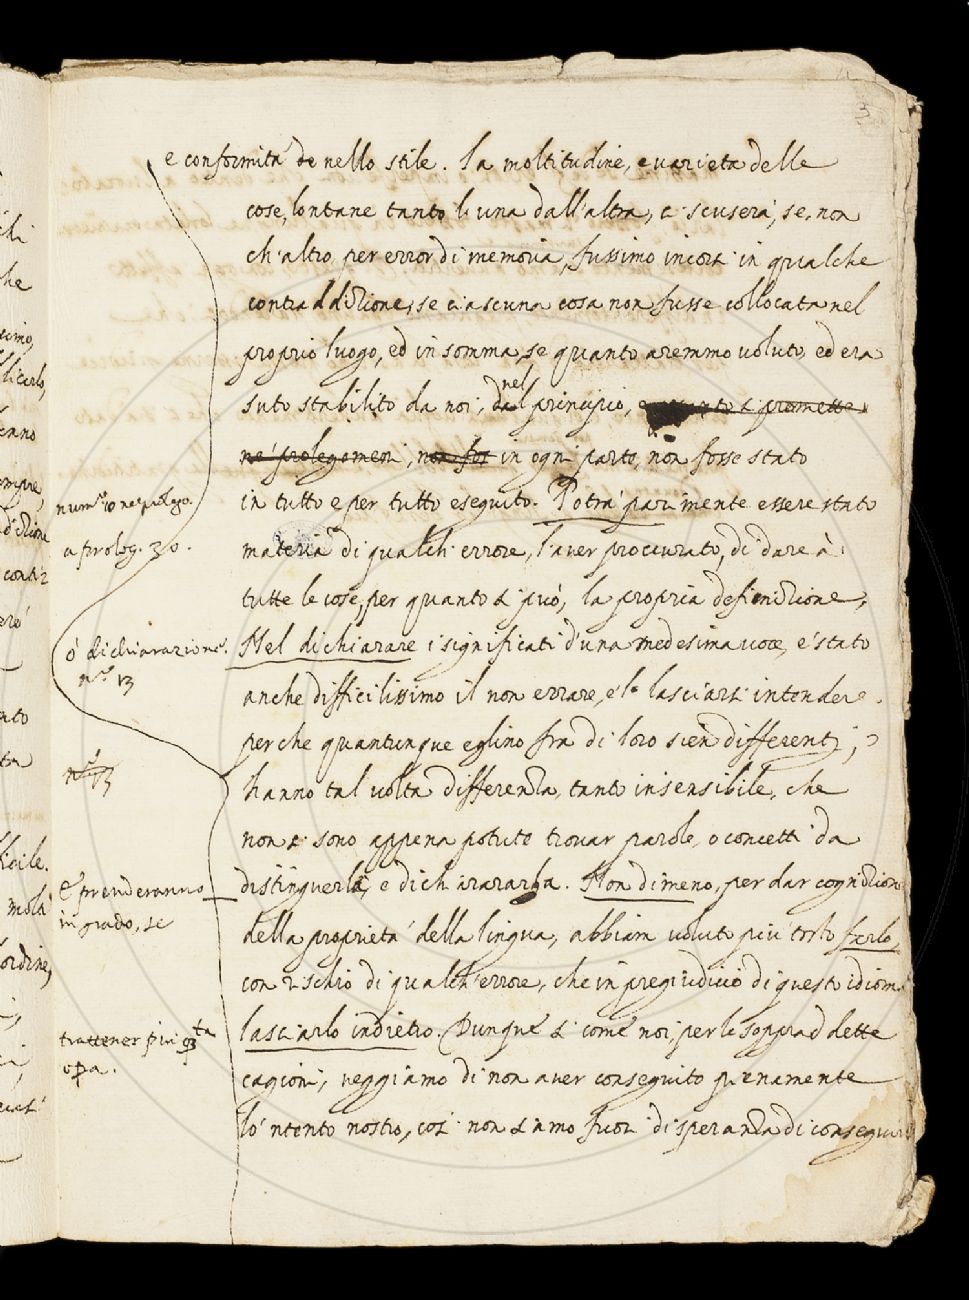 3
e conformità de nello stile. la moltitudine, e varietà delle
cose, lontane tanto l'una dall'altra, ci scuserà, se, non
ch'altro, per error di memoria, fussimo incorsi in qualche
contraddizione, se ciascuna cosa non fusse collocata nel
proprio luogo, ed in somma, se quanto aremmo voluto, ed era
suto stabilito da noi, dal nel principio,
ne' prolegomeni, non fos in ogni parte, non fosse stato
in tutto e per tutto eseguito. Potrà parimente essere stato
materia di qualch'errore, l'aver proccurato, di dare à
tutte le cose, per quanto si può, la propria definizione,
Nel dichiarare i significati d'una medesima voce, è stato
anche difficilissimo il non errare, e'l lasciarsi intendere.
perche quantunque eglino fra di loro sien differenti;
hanno tal volta differenza, tanto insensibile, che
non si sono appena potute trovar parole, o concetti da
distinguerla, e dichiararla. Non dimeno, per dar cognizion
della proprietà della lingua, abbiam voluto più tosto farlo,
con rischio di qualch'errore, che in pregiudicio di questo idioma
lasciarlo indietro. Dunque si come noi, per le sopraddette
cagioni, veggiamo di non aver conseguito pienamente
lo 'ntento nostro, così non siamo fuor di speranza di conseguir
num.º 10 ne prologo.
a prolog. 30.
ò dichiarazione.
n.º 13
n.º 13
E prenderanno
in grado, se
trattener più qsta
opa.